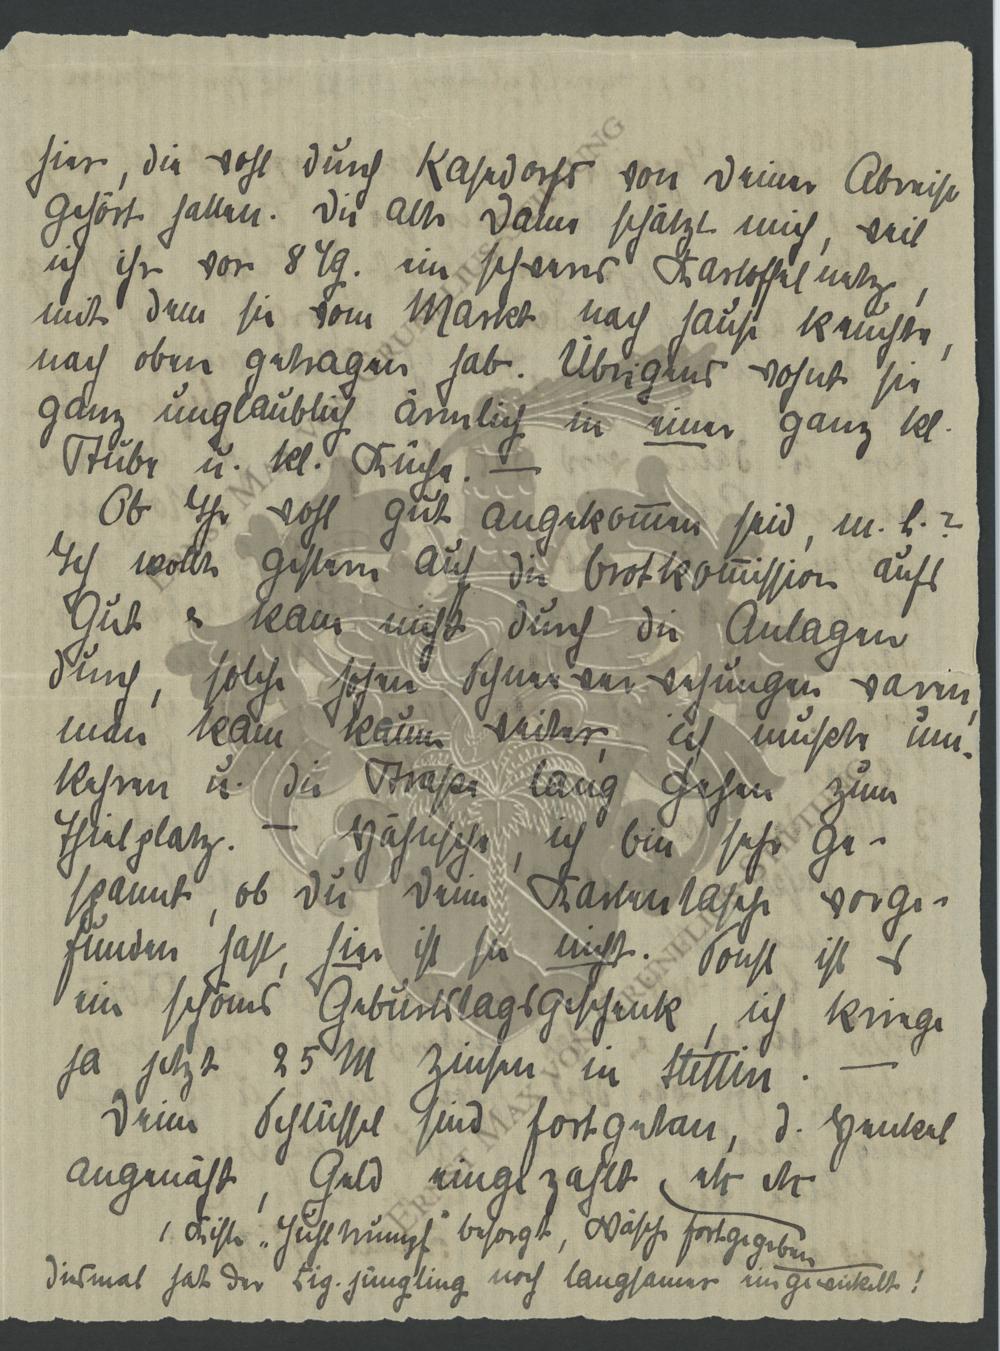 hier, die wohl durch Kasedorfs von Deiner Abreise
gehört hatten. Die alte Dame schätzt mich, weil
ich ihr vor 8 Tg. ein schweres Kartoffelnetz,
mit dem sie vom Markt nach Hause keuchte,
nach oben getragen hab. Übrigens wohnt sie
ganz unglaublich ärmlich in einer ganz kl.
Stube u. kl. Küche. —
Ob Ihr wohl gut angekommen seid, m. L.?
Ich wollte gestern auf die Brotkommission aufs
Gut & kam nicht durch die Anlagen
durch, solche hohen Schneeverwehungen waren,
man kam kaum weiter, ich mußte um-
kehren u. die Straße lang gehen zum
Thielplatz. — , ich bin sehr ge-
spannt, ob Du Deine Kartentasche vorge-
funden hast, hier ist sie nicht. Sonst ist es
ein schönes Geburtstagsgeschenk, ich kriege
ja jetzt 25 M Zinsen in Stettin. —
Deine Schlüssel sind fortgetan, d. Henkel
angenäht, Geld eingezahlt etc etc
, Kiste „ " besorgt, Wäsche fortgegeben
diesmal hat der Zig.jüngling noch langsamer eingewickelt!